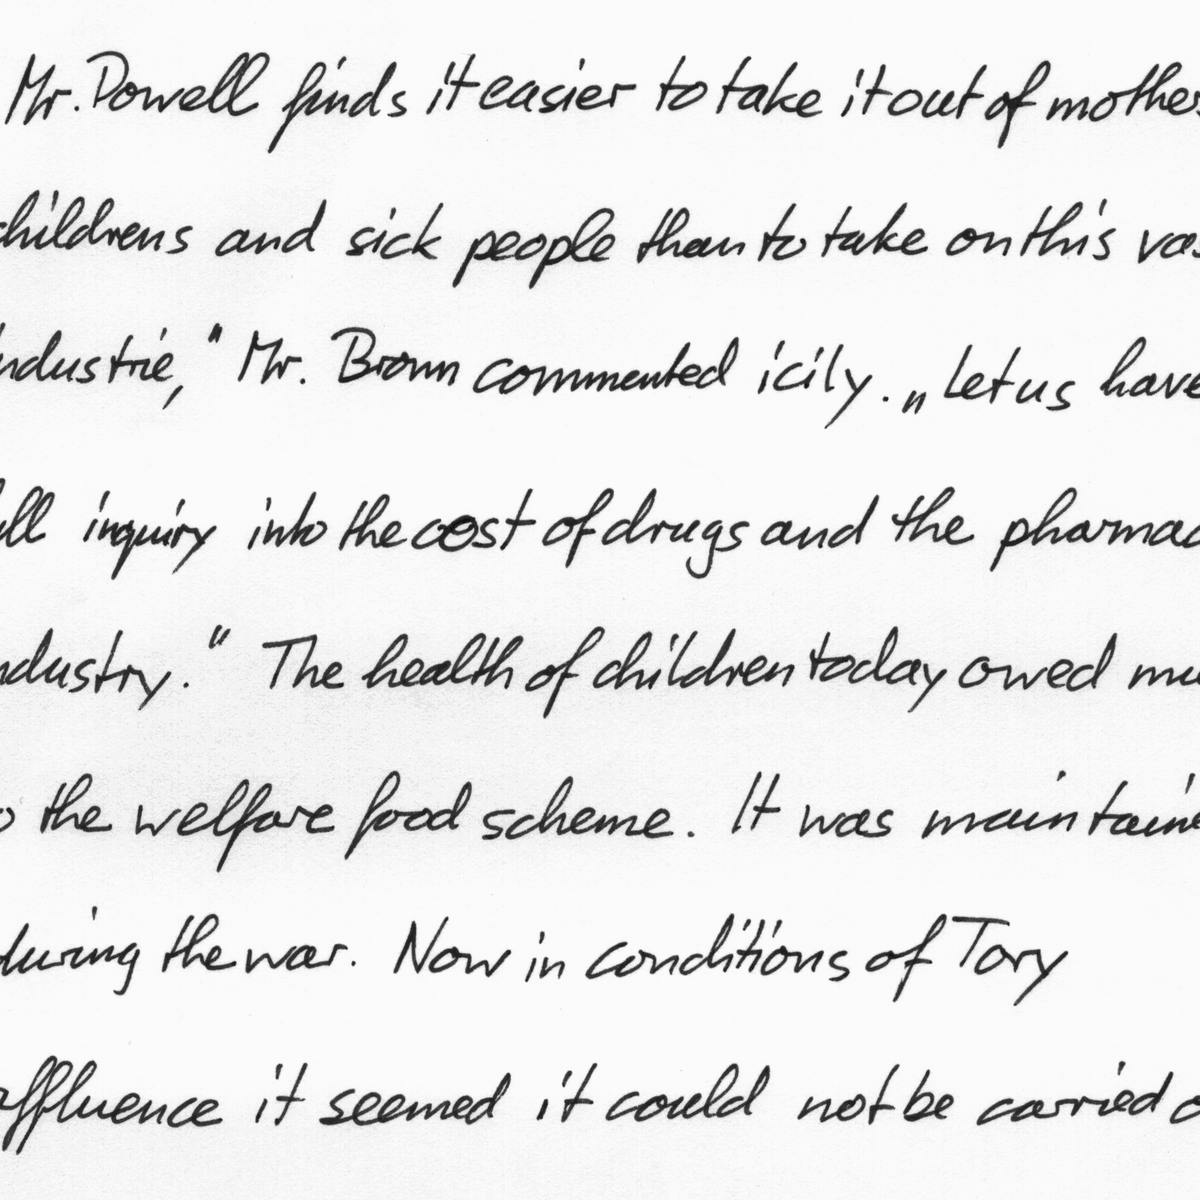 Mr. Powell finds it easier to take it out of mothers
childrens and sick people than to take on this
industrie," Mr. Brown commented icily. „Let us have
inquiry into the cost of drugs and the
industry." The health of children today owed
the welfare food scheme. It was
during the war. Now in conditions of Tory
affluence it seemed it could not be carried